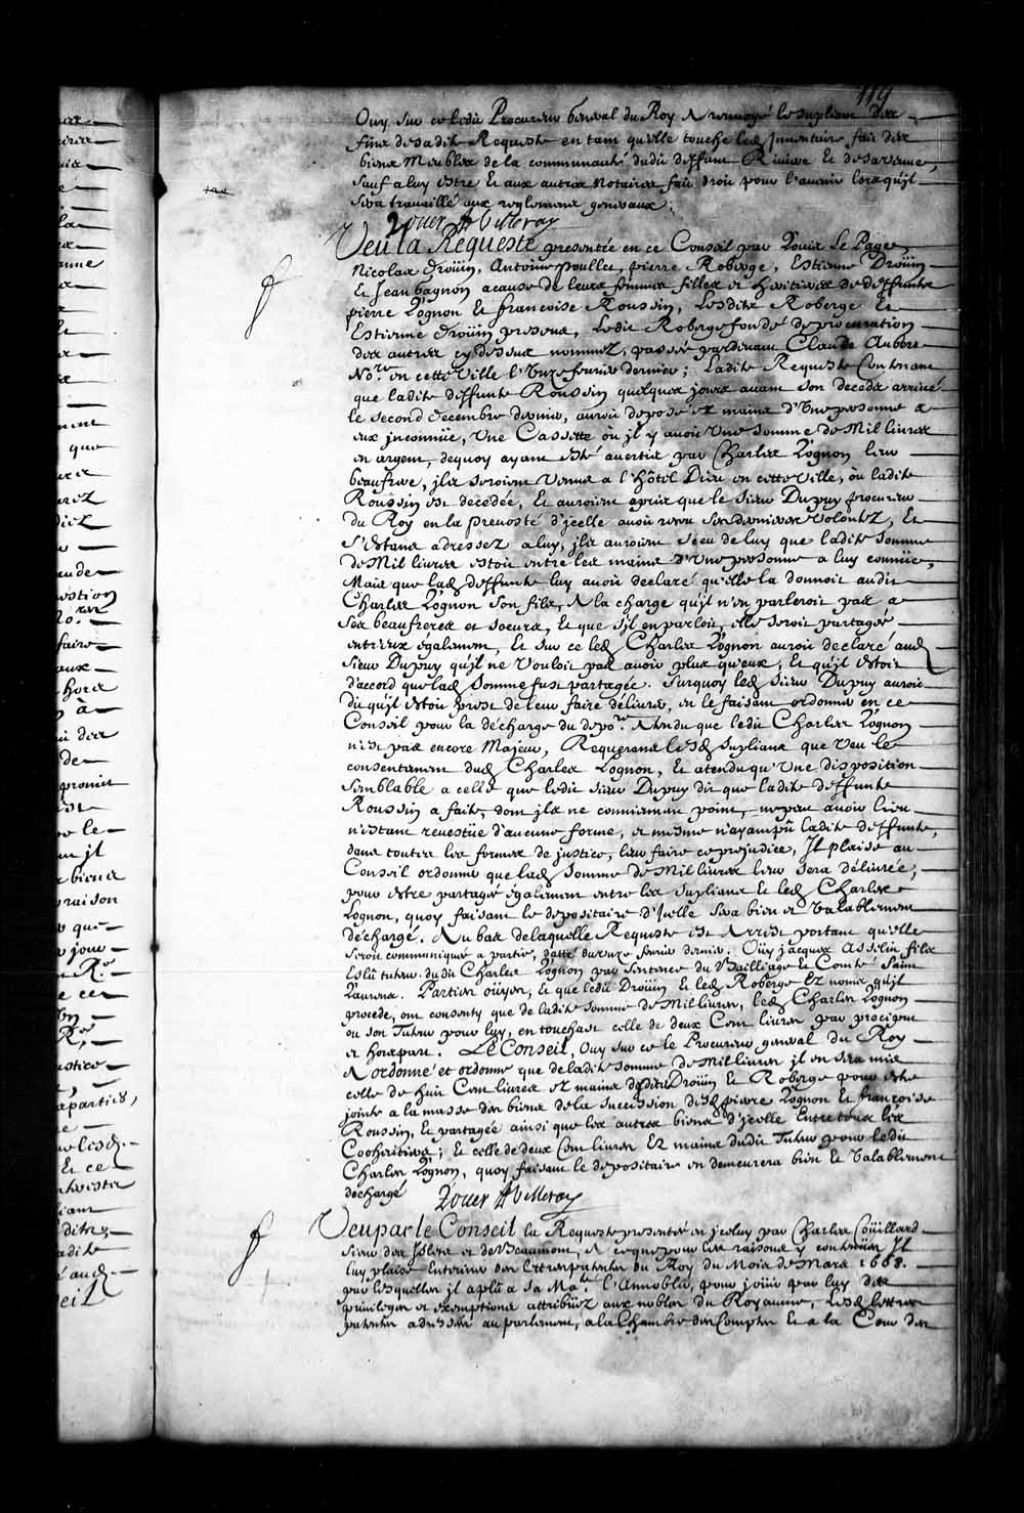 119
Ouy sur ce ledit Procureur general du Roy A renvoyé le supliant des
fins de sadite Requeste en tant qu'elle touche led Inventaire fait des
biens Meubles de la communauté dudit deffunt Riviere et de sa veuve,
sauf a luy estre et aux autres Notaires fait droit pour l'avenir lorsqu'jl
sera travaillé aux reglemens generaux.
Rouer de Villeray
Veu la Requeste presentée en ce Conseil par Louis Le Page,
Nicolas Droüin, Antoine poullet, pierre Roberge, Estienne Droüin
Et Jean Gagnon acause de leurs femmes filles et heritieres de deffunts
pierre Lognon Et francoise Roussin, Lesdits Roberge Et
Estienne Droüin presens, Ledit Roberge fondé de procuration
des autres cy dessus nommez, passée pardevant Claude Aubert
No.re en cette Ville l'unze febvrier dernier; Ladite Requeste Contenant
que ladite deffunte Roussin quelques jours avant son decedz arrivé
le second decembre dernier, auroit deposé ez mains d'Une personne a
eux jnconnüe, Une Cassette où jl y avoit Une somme de Mil livres
en argent, dequoy ayant esté avertis par Charles Lognon leur
beaufrere, jls seroient Venus a l'hôtel Dieu en cette Ville, où ladite
Roussin est decedée, Et auroient apris que le Sieur Dupuy procureur
du Roy en la prevosté d'jcelle avoit receu ses dernieres Volontez, Et
s'estans adressez a luy, jls auroient sceu de luy que ladite somme
de Mil livres estoit entre les mains d'Une personne a luy connüe,
Mais que lad deffunte luy avoit declaré qu'elle la donnoit audit
Charles Lognon son fils, A la charge qu'jl n'en parleroit pas a
ses beaufreres et soeurs, Et que s'jl en parloit, elle seroit partagée
entr'eux également, Et sur ce led Charles Lognon auroit declaré aud
Sieur Dupuy qu'jl ne Vouloit pas avoir plus qu'eux, Et qu'jl estoit
d'accord que lad somme fust partagée. Surquoy led Sieur Dupuy auroit
dit qu'jl estoit prest de leur faire délivrer, en le faisant ordonner en ce
Conseil pour la décharge du depo.re Atendu que ledit Charles Lognon
n'est pas encore Majeur, Requerans lesd suplians que Veu le
consentement dud Charles Lognon, Et atendu qu'Une disposition
semblable a celle que ledit Sieur Dupuy dit que ladite deffunte
Roussin a faite, dont jls ne conviennent point, ne peut avoir lieu
n'estant revestüe d'aucune forme, et mesme n'ayant pû ladite deffunte,
dans toutes les formes de justice, leur faire ce prejudice, Il plaise au
Conseil ordonner que lad somme de Mil livres leur sera délivrée,
pour estre partagée également entre les suplians Et led Charles
Lognon, quoy faisant le depositaire d'jcelle sera bien et Valablement
déchargé. Au bas de laquelle Requeste est Arrest portant qu'elle
seroit communiquée a partie, datté du unze fevrier dernier. Oüy jacques Asselin fils
Eslû tuteur dudit Charles Lognon par sentence du Bailliage du Comté Saint
Laurens. Parties oüyes, Et que ledit Droüin Et led Roberge Ez noms qu'jl
procede, ont consenty que de ladite somme de Mil livres, led Charles Lognon
ou son Tuteur pour luy, en touchast celle de deux Cent livres par preciput
et horspart. Le Conseil, Ouy sur ce le Procureur general du Roy
A ordonné et ordonne que de ladite somme de Mil livres jl en sera mis
celle de huit Cent livres ez mains desdits Droüin Et Roberge pour estre
jointe a la masse des biens de la succession desd pierre Lognon Et françoise
Roussin, Et partagée ainsi que les autres biens d'jcelle Entre tous les
Coheritiers; Et celle de deux Cent livres Ez mains dudit Tuteur pour ledit
Charles Lognon, quoy faisant le depositaire en demeurera bien Et Valablement
déchargé Rouer de Villeray
Veu par le Conseil la Requeste presentée en jceluy par Charles Coüillard
Sieur des Islets et de Beaumont, A ce que pour les raisons y contenües Il
luy plaise Enteriner des lettres patentes du Roy du Mois de Mars 1668.
par lesquelles jl a plû a Sa Ma.té l'Annoblir, pour joüir par luy des
privileges et exemptions attribüez aux nobles du Royaume, lesd lettres
patentes adressées au parlement, a la Chambre des Comptes Et a la Cour des